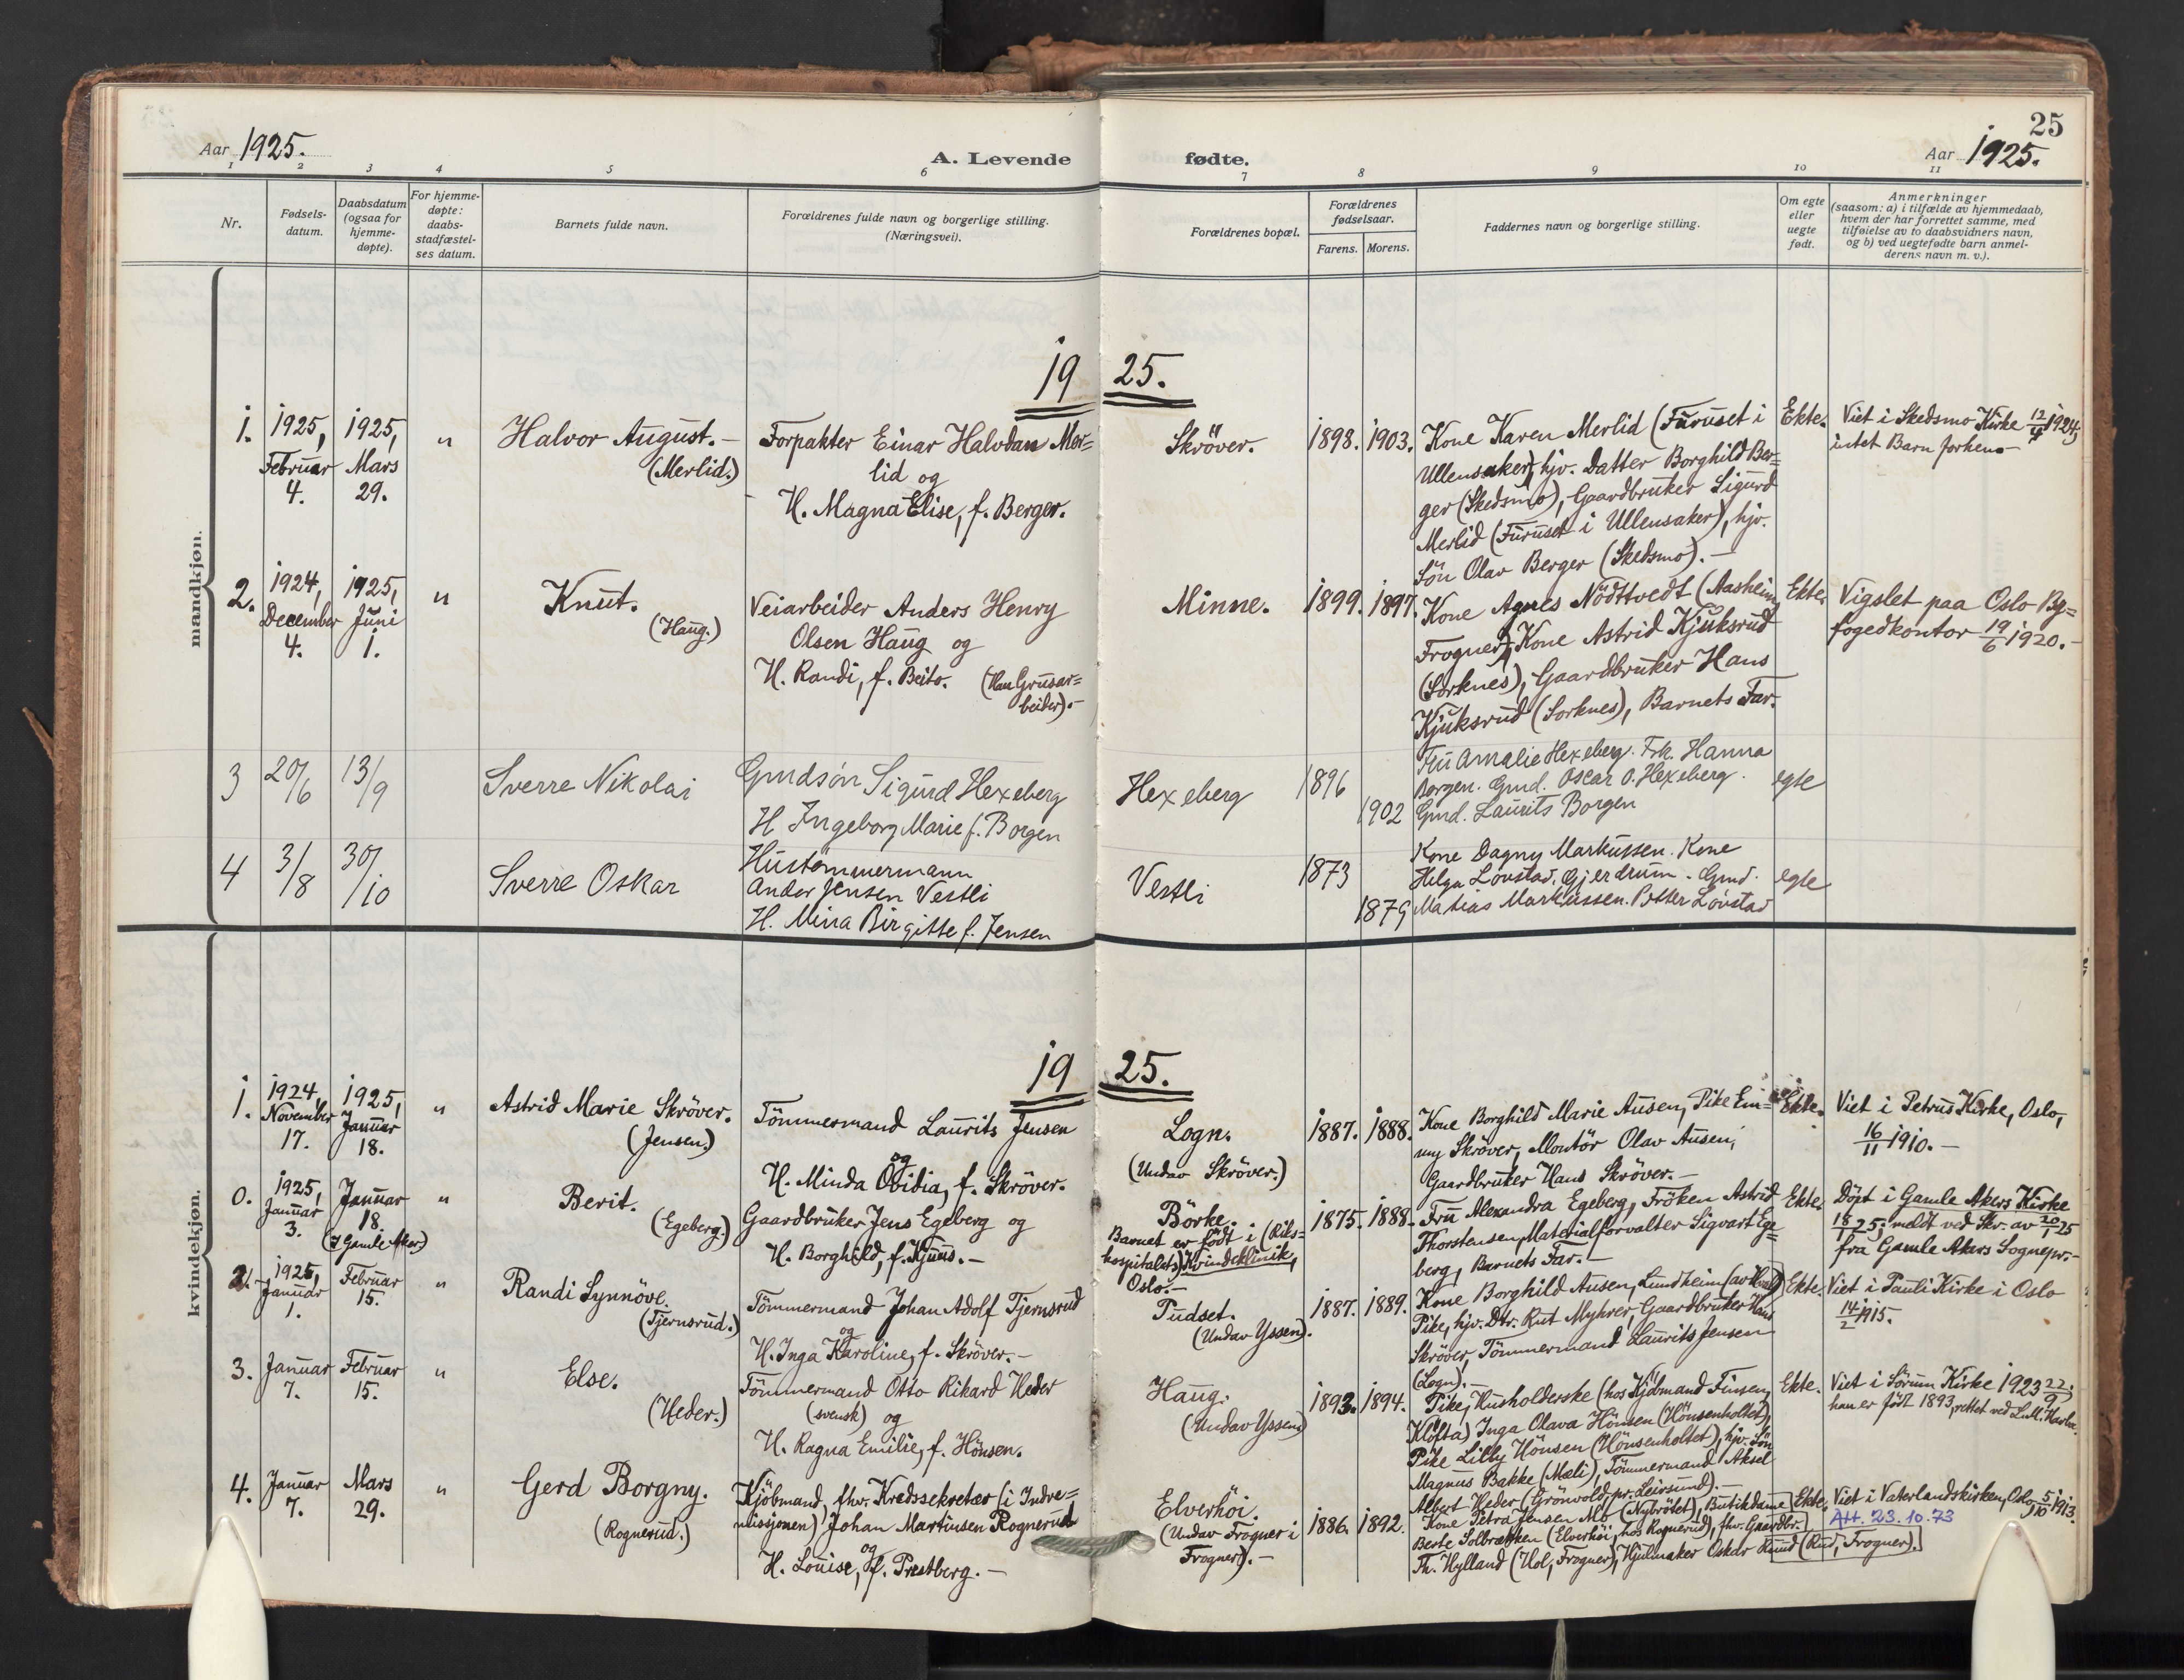 25
Aar 1925.
A. Levende fødte.
Aar 1925.
1 2 3 4 5 6 7 8 9 10 11
Nr.
Fødsels-
datum.
Daabsdatum
(ogsaa for
hjemme-
døpte).
For hjemme-
døpte:
daabs-
stadfæstel-
ses datum.
Barnets fulde navn.
Forældrenes fulde navn og borgerlige stilling.
(Næringsvei).
Forældrenes bopæl.
Forældrenes
fødselsaar.
Farens. Morens.
Faddernes navn og borgerlige stilling.
Om egte
eller
uegte
født.
Anmerkninger
(saasom: a) i tilfælde av hjemmedaab,
hvem der har forrettet samme, med
tilføielse av to daabsvidners navn,
og b) ved uegtefødte barn anmel-
derens navn m. v.).
mandkjøn.
19 25.
1.
1925,
Februar
4.
1925,
Mars
29.
"
Halvor August. –
(Merlid.)
Forpakter Einar Halvdan Mer=
lid og
H. Magna Elise, f. Berger.
Skröver.
1898. 1903.
Kone Karen Merlid (Furuset i
Ullensaker), hjv. Datter Borghild Ber=
ger (Skedsmo), Gaardbruker Sigurd
Merlid (Furuset i Ullensaker), hjv.
Sön Olav Berger (Skedsmo). –
Ekte.
Viet i Skedsmo Kirke 12/4 1924;
intet Barn forhen. –
2.
1924,
December
4.
1925,
Juni
1.
"
Knut.
(Haug.)
Veiarbeider Anders Henry
Olsen Haug og
H. Randi, f. Beito. (Han Grusar=
beider). –
Minne.
1899. 1897.
Kone Agnes Nödttvedt (Aasheim,
Frogner), Kone Astrid Kjuksrud
(Sorknes), Gaardbruker Hans
Kjuksrud (Sorknes), Barnets Far.
Ekte.
Vigslet paa Oslo By=
fogedkontor 19/6 1920. –
3
20/6
13/9
Sverre Nikolai
Gmdsön Sigurd Hexeberg
H Ingeborg Marie f. Borgen
Hexeberg
1896
1902
Fru Amalie Hexeberg. Frk. Hanna
Borgen. Gmd. Oscar O. Hexeberg.
Gmd. Laurits Borgen
egte
4
3/8
30/10
Sverre Oskar
Hustömmermann
Anders Jensen Vestli
H. Mina Birgitte f. Jensen
Vestli
1873
1879
Kone Dagny Markussen. Kone
Helga Lövstad, Gjerdrum. Gmd.
Matias Markussen. Petter Lövstad
egte
kvindekjøn.
19 25.
1.
1924,
November
17.
1925,
Januar
18.
"
Astrid Marie Skröver.
(Jensen.)
Tömmermand Laurits Jensen
og
H. Minda Ovidia, f. Skröver.
Logn.
(Undav Skröver.)
1887. 1888.
Kone Borghild Marie Ausen, Pike Em=
my Skröver, Montör Olav Ausen,
Gaardbruker Hans Skröver. –
Ekte.
Viet i Petrus Kirke, Oslo,
16/11 1910. –
0.
1925,
Januar
3.
Januar
18.
(I Gamle Aker.)
"
Berit.
(Egeberg.)
Gaardbruker Jens Egeberg og
H. Borghild, f. Kjuus. –
Börke.
Barnet er födt i (Riks=
hospitalets) Kvindeklinik,
Oslo. –
1875. 1888.
Fru Alexandra Egeberg, Fröken Astrid
Thorstensen, Materialforvalter Sigvart Ege=
berg, Barnets Far. –
Ekte.
Döpt i Gamle Akers Kirke
18/1 25; meldt ved Skr. av 20/1 25
fra Gamle Akers Sognepr. –
2.
1925,
Januar
1.
Februar
15.
"
Randi Synnöve.
(Tjernsrud.)
Tömmermand Johan Adolf Tjernsrud
og
H. Inga Karoline, f. Skröver. –
Pudset.
(Undav Yssen).
1887. 1889.
Kone Borghild Ausen, Lundheim
Pike, hjv. Dtr. Rut Myhrer, Gaardbruker Hans
Skröver, Tömmermand Laurits Jensen
(Logn). –
Ekte.
Viet i Pauli Kirke i Oslo
14/2 1915.
3.
Januar
7.
Februar
15.
"
Else.
(Heder.)
Tömmermand Otto Rikard Heder
(svensk) og
H. Ragna Emilie, f. Hönsen.
Haug.
(Undav Yssen)
1893. 1894.
Pike, Husholderske (hos Kjöbmand Finsen,
Klöfta) Inga Olava Hönsen (Hönsenholtet),
Pike Lilly Hönsen (Hönsenholtet), hjv. Sön
Magnus Bakke (Mæli), Tömmermand Aksel
Albert Heder (Grönvold, pr. Leirsund). –
Ekte.
Viet i Sörum Kirke 1923 22/9;
han er födt 1893, rettet ved
4.
Januar
7.
Mars
29.
"
Gerd Borgny.
(Rognerud.)
Kjöbmand, fhv. Kredssekretær (i Indre=
missjonen) Johan Martinsen Rognerud
og
H. Louise, f. Prestberg. –
Elverhöi.
(Undav Frogner i
Frogner). –
1886. 1892.
Kone Petra Jensen Mo (Nybrötet), Butikdame
Berte Solbrækken (Elverhöi, hos Rognerud), fhv. Gaardbr.
Th. Hylland (Hol, Frogner), Hjulmaker Oskar Ruud (Rud, Frogner).
Ekte.
Viet i Vaterlandskirken, Oslo, 5/10 1913.
Att. 23.10.73